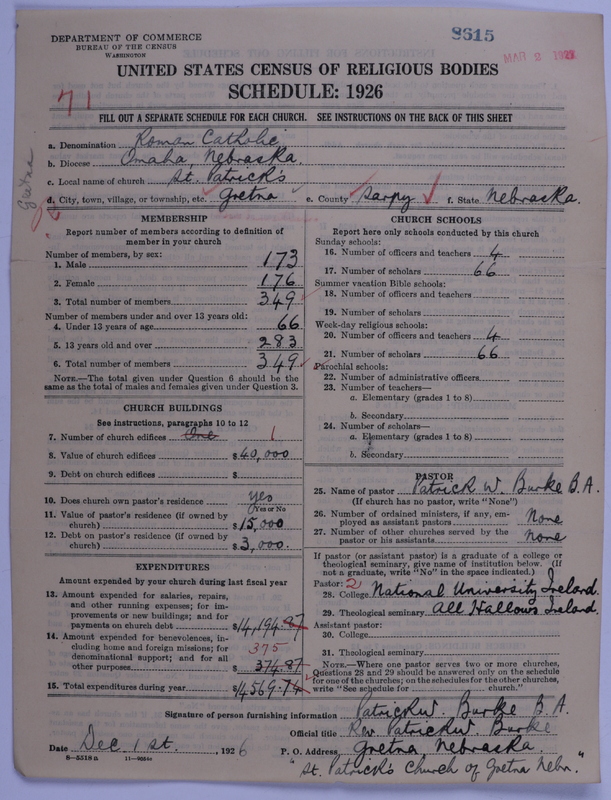 DEPARTMENT OF COMMERCE
BUREAU OF THE CENSUS
WASHINGTON
8615
MAR 2 1927
UNITED STATES CENSUS OF RELIGIOUS BODIES
SCHEDULE: 1926
71
FILL OUT A SEPARATE SCHEDULE FOR EACH CHURCH. SEE INSTRUCTIONS ON THE BACK OF THIS SHEET
a. Denomination Roman Catholic
b. Diocese Omaha, Nebraska.
c. Local name of church St. Patrick's
d. City, town, village, or township, etc. Gretna e. County Sarpy f. State Nebraska.
Gretna
MEMBERSHIP
Report number of members according to definition of
member in your church
Number of members, by sex:
1. Male 173
2. Female 176
3. Total number of members 349
Number of members under and over 13 years old:
4. Under 13 years of age 66
5. 13 years old and over 283
6. Total number of members 349
NOTE.—The total given under Question 6 should be the
same as the total of males and females given under Question 3.
CHURCH BUILDINGS
See instructions, paragraphs 10 to 12
7. Number of church edifices One 1
8. Value of church edifices $40,000
9. Debt on church edifices $
10. Does church own pastor's residence yes
Yes or No
11. Value of pastor's residence (if owned by
church) $15,000
12. Debt on pastor's residence (if owned by
church) $3,000.
EXPENDITURES
Amount expended by your church during last fiscal year
13. Amount expended for salaries, repairs,
and other running expenses; for im-
provements or new buildings; and for
payments on church debt $14,194.87
14. Amount expended for benevolences, in-
cluding home and foreign missions; for
denominational support; and for all
other purposes 375 $374.87
15. Total expenditures during year $14569.74
CHURCH SCHOOLS
Report here only schools conducted by this church
Sunday schools:
16. Number of officers and teachers 4
17. Number of scholars 66
Summer vacation Bible schools:
18. Number of officers and teachers
19. Number of scholars
Week-day religious schools:
20. Number of officers and teachers 4
21. Number of scholars 66
Parochial schools:
22. Number of administrative officers
23. Number of teachers—
a. Elementary (grades 1 to 8)
b. Secondary
24. Number of scholars—
a. Elementary (grades 1 to 8)
b. Secondary
PASTOR
25. Name of pastor Patrick W. Burke B.A.
(If church has no pastor, write "None")
26. Number of ordained ministers, if any, em-
ployed as assistant pastors None
27. Number of other churches served by the
pastor or his assistants None
If pastor (or assistant pastor) is a graduate of a college or
theological seminary, give name of institution below. (If
not a graduate, write "No" in the space indicated.)
Pastor: 2
28. College National University Ireland.
29. Theological seminary All Hallows Ireland.
Assistant pastor:
30. College
31. Theological seminary
NOTE.—Where one pastor serves two or more churches,
Questions 28 and 29 should be answered only on the schedule
for one of the churches; on the schedules for the other churches,
write "See schedule for church."
Signature of person furnishing information Patrick W. Burke B.A.
Official title Rev. Patrick W. Burke
Date Dec. 1st., 1926 P. O. Address Gretna Nebraska.
8-5518a 11-9054a
"St. Patrick's Church of Gretna Nebr."